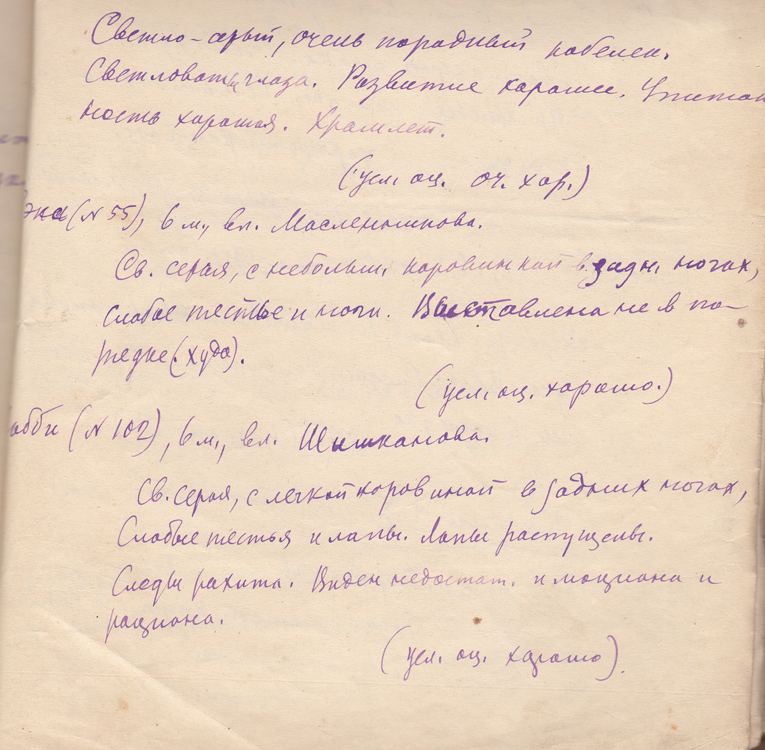 Светло-серый, очень породный кобелек.
Светловаты глаза. Развитие хорошее. Упитан
ность хорошая. Храмлет.
(усл. оц. оч. хор.)
(N 55), 6 м., вл. Масленникова.
Св. серая, с небольш. коровинкой в задн. ногах,
слабые пястье и ноги. Выставлена не в по-
рядке (худа).
(усл. оц. хорошо.)
обби (N 102), 6 м., вл. Шишканова.
Св. серая, с легкой коровиной в задних ногах,
Слабые пястья и лапы. Лапы распущены.
Следы рахита. Виден недостат. и моциона и
рациона.
(усл. оц. хорошо)